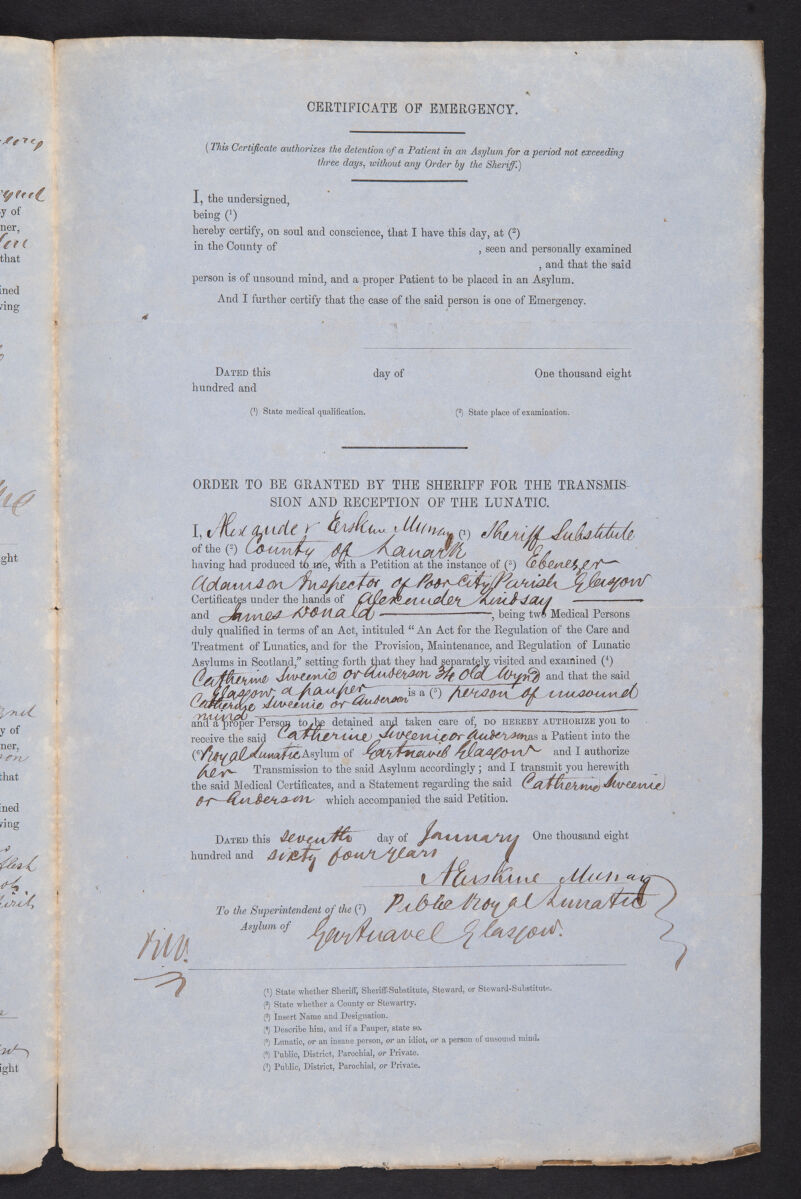 CERTIFICATE OF EMERGENCY.
(This Certificate authorizes the detention of a Patient in an Asylum for a period not exceeding
three days, without any Order by the Sheriff.)
I, the undersigned,
being (¹)
hereby certify, on soul and conscience, that I have this day, at (²)
in the County of , seen and personally examined
, and that the said
person is of unsound mind, and a proper Patient to be placed in an Asylum.
And I further certify that the case of the said person is one of Emergency.
DATED this day of One thousand eight
hundred and
(¹) State medical qualification. (²) State place of examination.
ORDER TO BE GRANTED BY THE SHERIFF FOR THE TRANSMIS-
SION AND RECEPTION OF THE LUNATIC.
I, Alexander Erskine Murray (¹) Sheriff Substitute
of the (²) County of Lanark
having had produced to me, with a Petition at the instance of (³) Ebenezer
Adamson Inspector of Poor City Parish Glasgow
Certificates under the hands of Alexander Lindsay
and James Donald , being two Medical Persons
duly qualified in terms of an Act, intituled “An Act for the Regulation of the Care and
Treatment of Lunatics, and for the Provision, Maintenance, and Regulation of Lunatic
Asylums in Scotland,” setting forth that they had separately visited and examined (⁴)
Catherine Sweenie or Anderson 34 Old Wynd and that the said
Glasgow, a pauper
Catherine Sweenie or Anderson is a (⁵) person of unsound
mind
and a proper Person to be detained and taken care of, DO HEREBY AUTHORIZE you to
receive the said Catherine Sweenie or Anderson as a Patient into the
(⁶) Royal Lunatic Asylum of Gartnavel Glasgow and I authorize
her Transmission to the said Asylum accordingly; and I transmit you herewith
the said Medical Certificates, and a Statement regarding the said Catherine Sweenie
or Anderson which accompanied the said Petition.
DATED this seventh day of January One thousand eight
hundred and sixty four years
A Erskine Murray
To the Superintendent of the (⁷) Public Royal Lunatic
Asylum of Gartnavel Glasgow.
(¹) State whether Sheriff, Sheriff-Substitute, Steward, or Steward-Substitute.
(²) State whether a County or Stewartry.
(³) Insert Name and Designation.
(⁴) Describe him, and if a Pauper, state so.
(⁵) Lunatic, or an insane person, or an idiot, or a person of unsound mind.
(⁶) Public, District, Parochial, or Private.
(⁷) Public, District, Parochial, or Private.
y of
ner,
that
ined
ving
ght
y of
ner,
that
ined
ving
ight